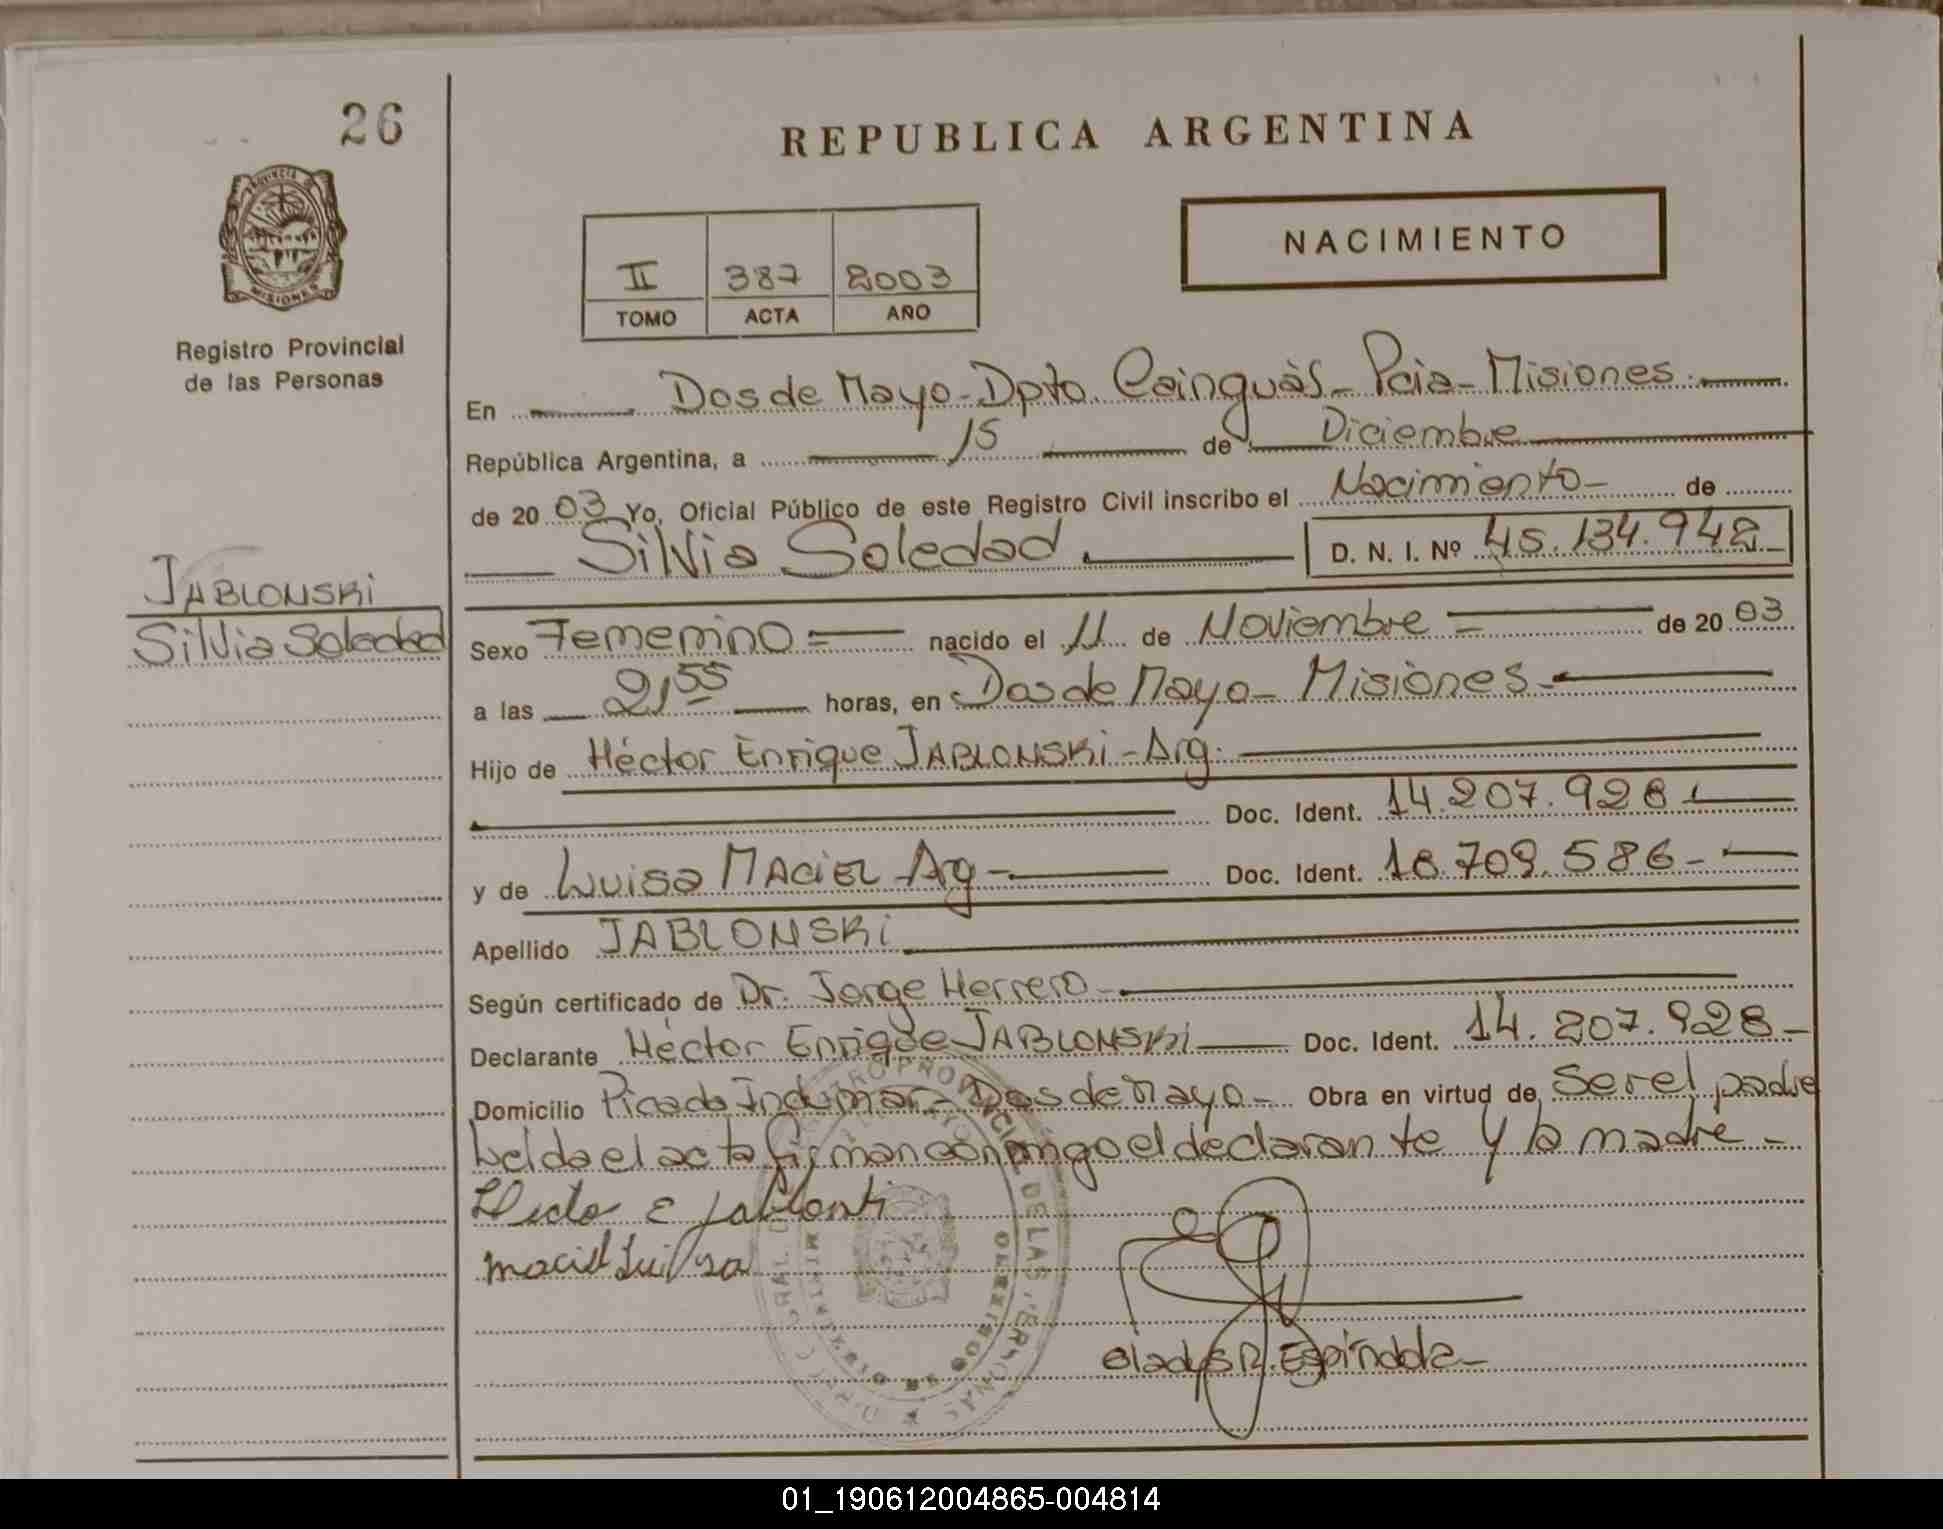 26
REPUBLICA ARGENTINA
PROVINCIA DE
MISIONES
Registro Provincial
de las Personas
NACIMIENTO
II 387 2003
TOMO ACTA AÑO
En Dos de Mayo - Dpto. Cainguás - Pcia - Misiones.
República Argentina, a 15 de Diciembre
de 2003 Yo, Oficial Público de este Registro Civil inscribo el Nacimiento - de
Silvia Soledad. D. N. I. Nº 45.134.942
JABLONSKi
Silvia Soledad
Sexo Femenino = nacido el 11 de Noviembre = de 2003
a las 21,55 horas, en Dos de Mayo - Misiones -
Hijo de Héctor Enrique JABLONSKi - Arg.
Doc. Ident. 14.207.928
y de Luisa MACiEL - Arg - Doc. Ident. 18.709.586 -
Apellido JABLONSKi
Según certificado de Dr. Jorge Herrero -
Declarante Héctor Enrique JABLONSKi Doc. Ident. 14.207.928 -
Domicilio Picada Indumar - Dos de Mayo - Obra en virtud de Ser el padre
Leída el acta firman conmigo el declarante y la madre -
Maciel Luisa
Gladys R. Espíndola -
01_190612004865-004814